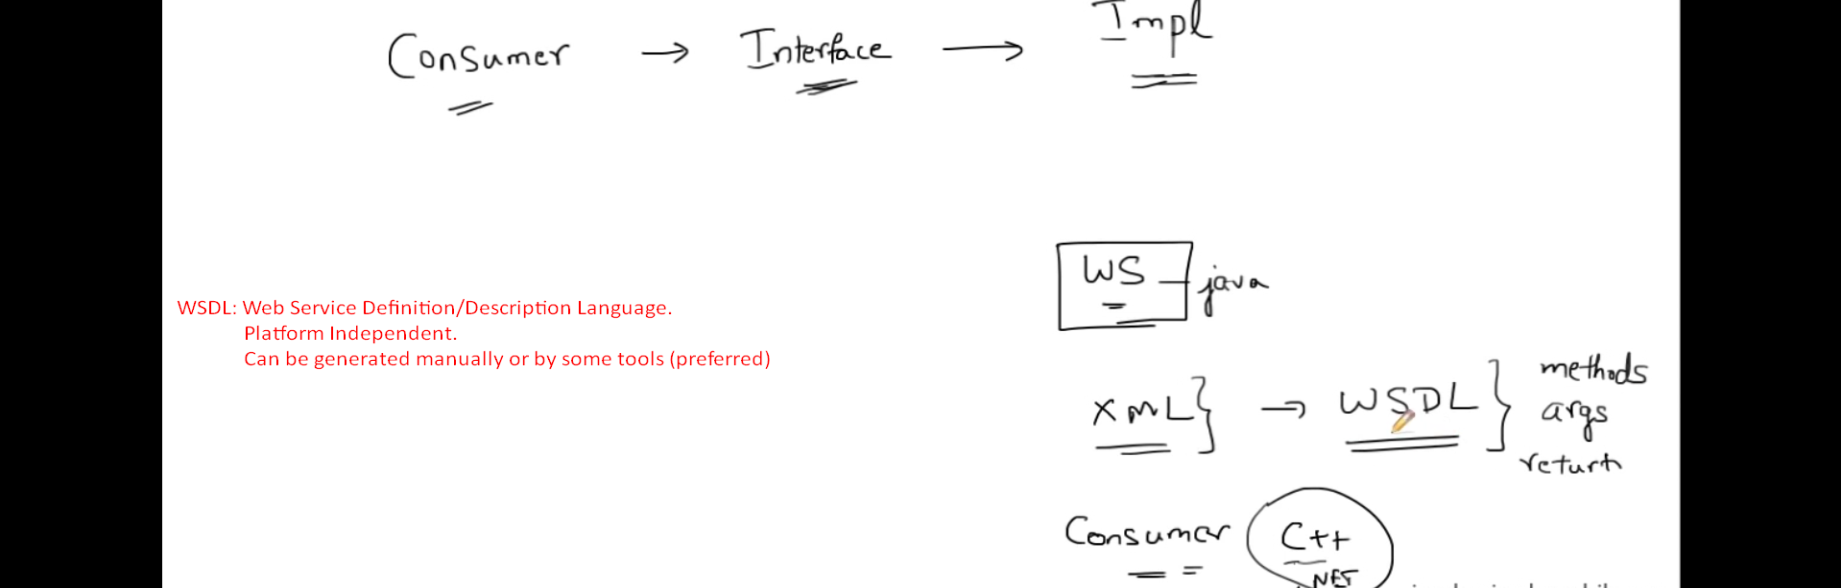 Consumer → Interface → Impl
WS - java
WSDL: Web Service Definition/Description Language.
Platform Independent.
Can be generated manually or by some tools (preferred)
XML} → WSDL} methods
args
return
Consumer C++
.NET